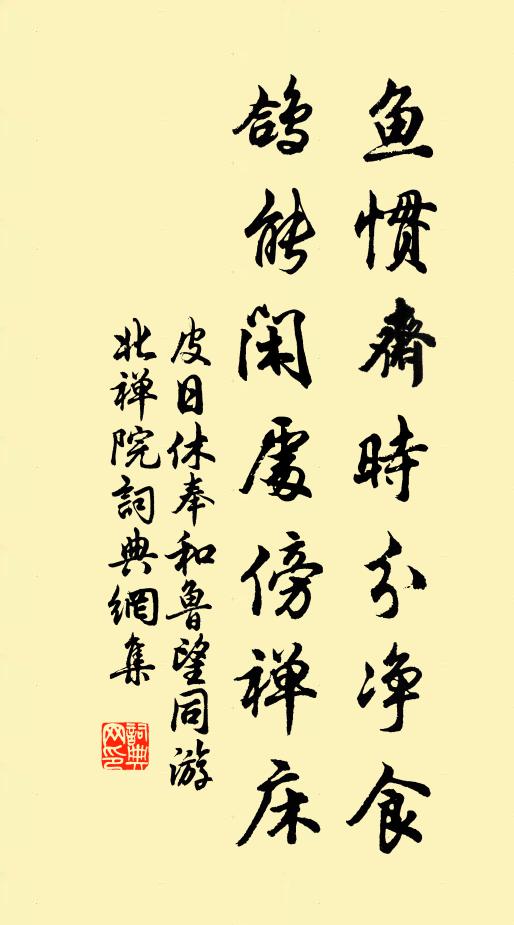 鱼惯斋時分净食
鸽能闲處傍禅床
皮日休奉和鲁望同游
北禅院詞典網集
詞典网印